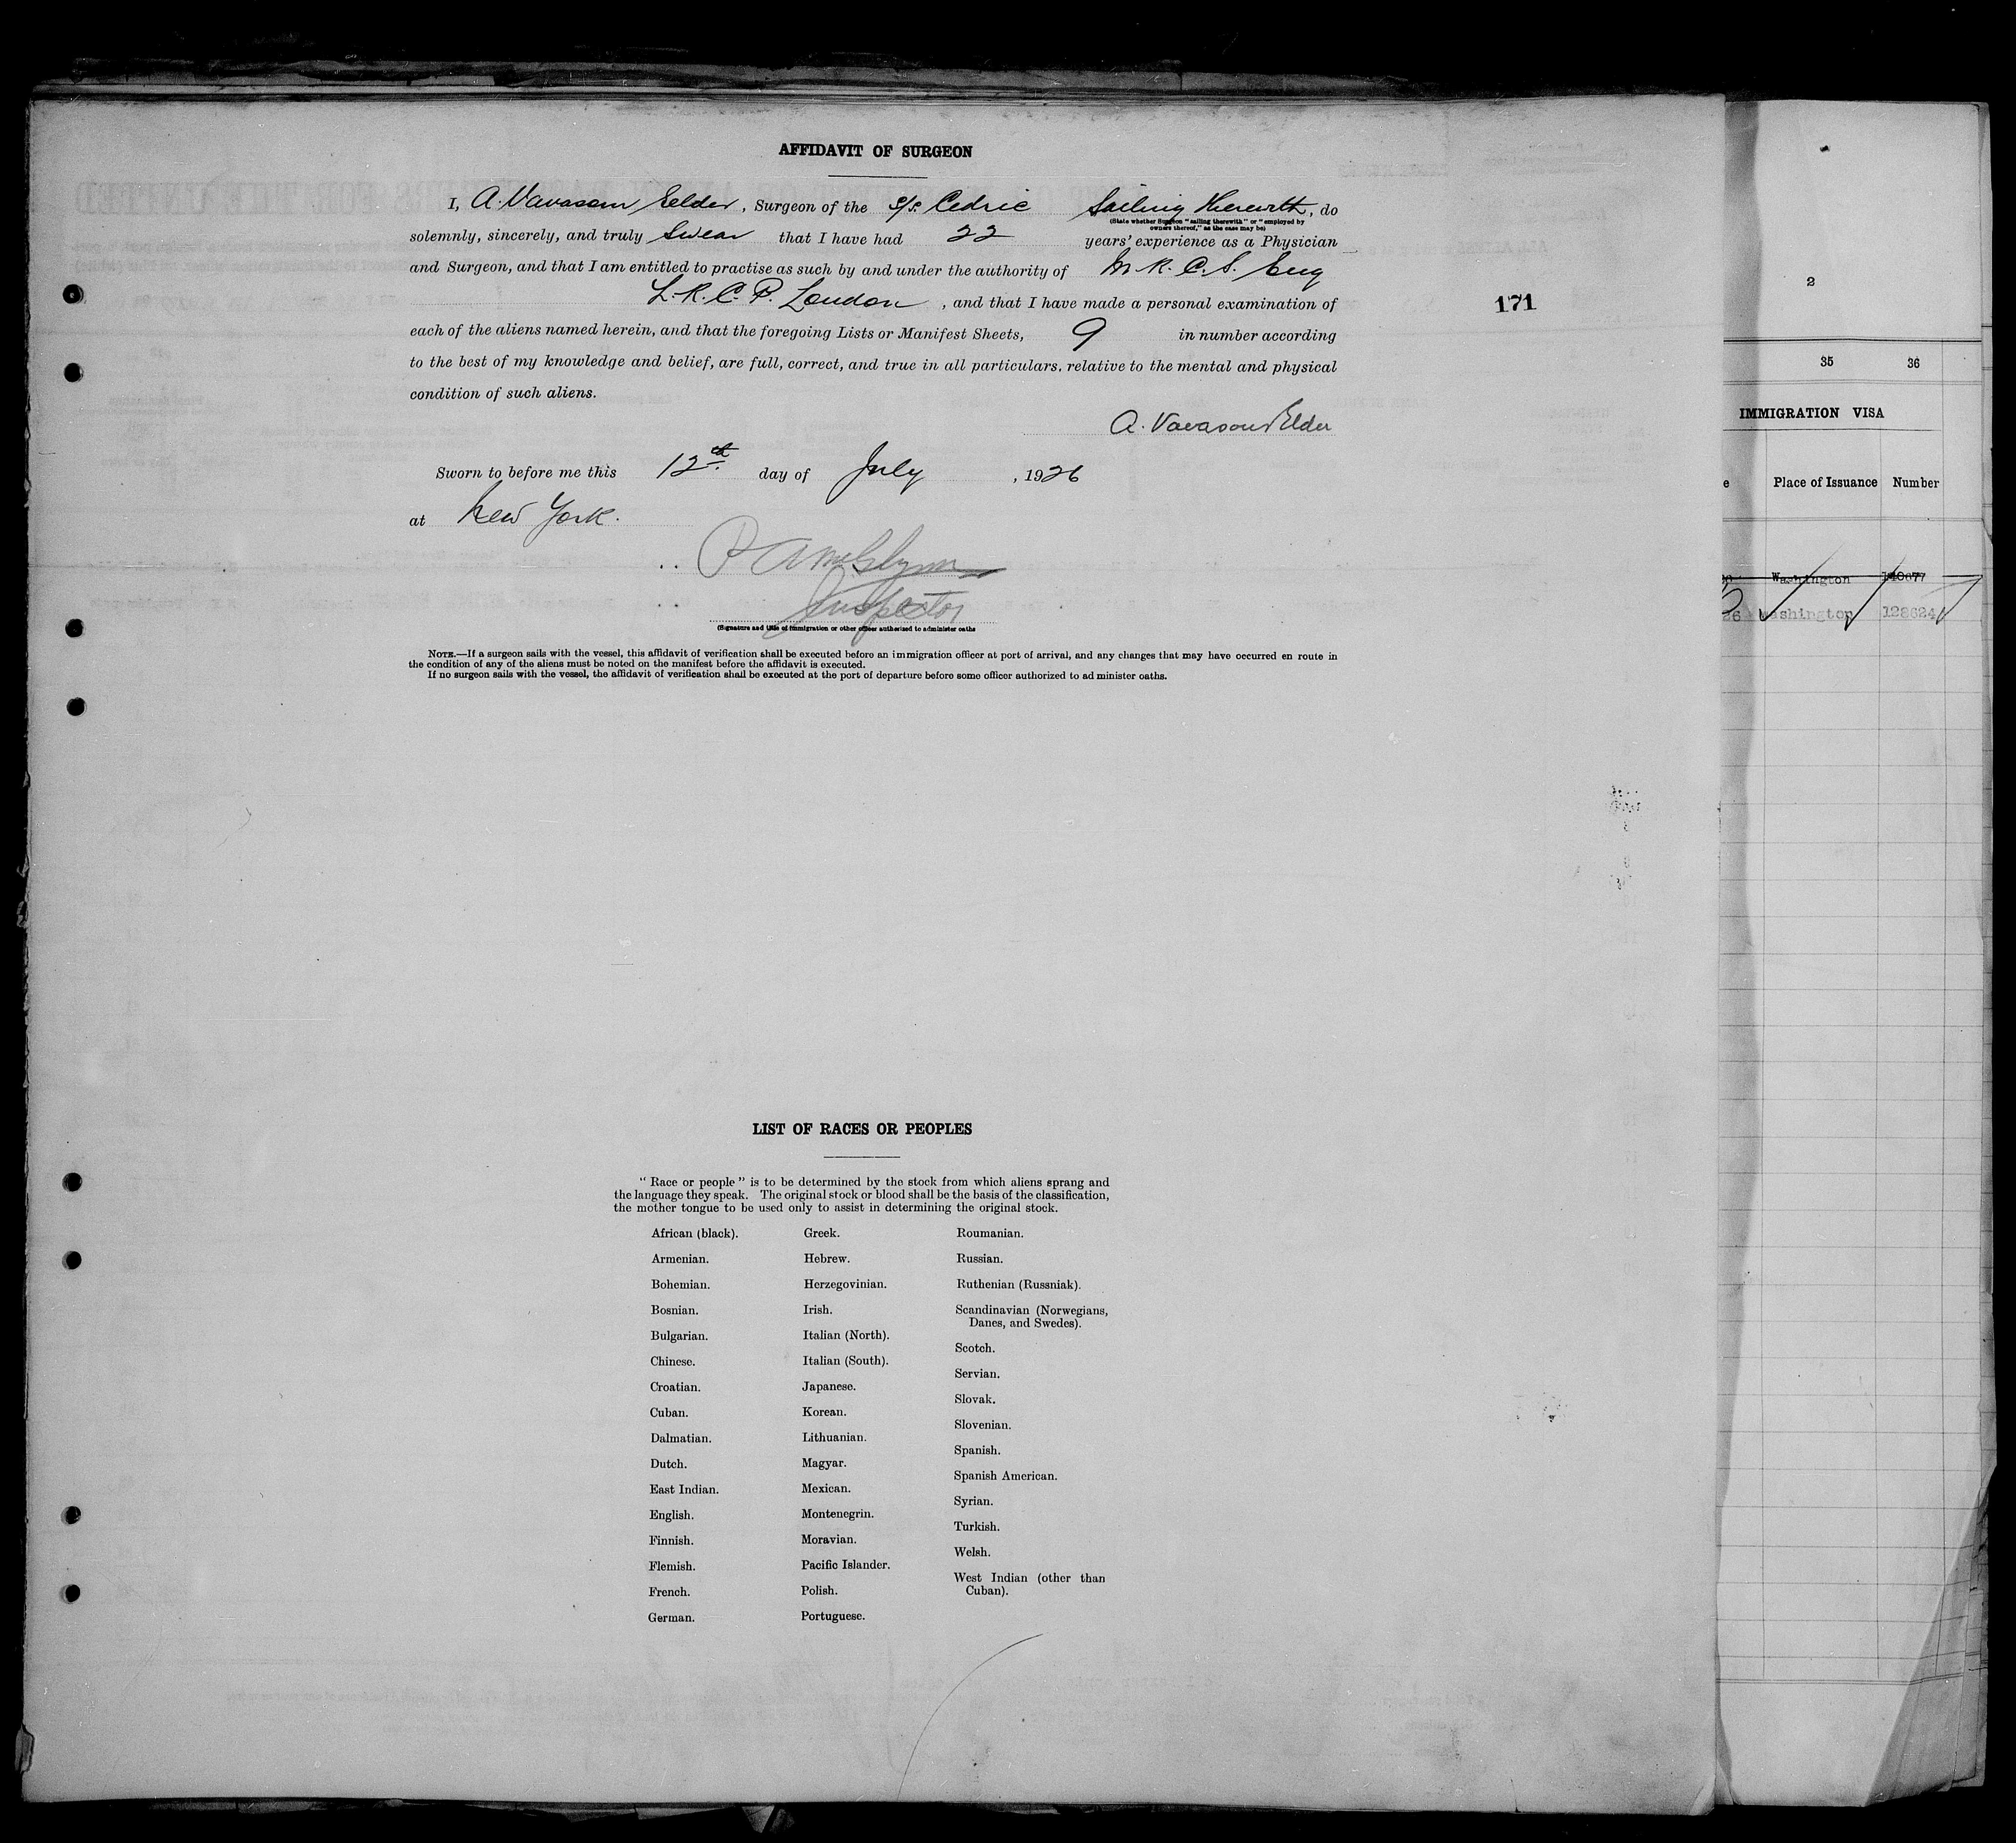 AFFIDAVIT OF SURGEON
I, A. Vavasour Elder, Surgeon of the S/S. Cedric Sailing Therewith, do
(State whether Surgeon "sailing therewith" or "employed by
owners thereof," as the case may be)
solemnly, sincerely, and truly Swear that I have had 22 years' experience as a Physician
and Surgeon, and that I am entitled to practise as such by and under the authority of M.R.C.S. Eng
L.R.C.P. London, and that I have made a personal examination of
each of the aliens named herein, and that the foregoing Lists or Manifest Sheets, 9 in number according
to the best of my knowledge and belief, are full, correct, and true in all particulars, relative to the mental and physical
condition of such aliens.
A. Vavasour Elder
Sworn to before me this 12th day of July, 1926
at New York.
P A McGlynn
Inspector
(Signature and title of immigration or other officer authorized to administer oaths
NOTE.—If a surgeon sails with the vessel, this affidavit of verification shall be executed before an immigration officer at port of arrival, and any changes that may have occurred en route in
the condition of any of the aliens must be noted on the manifest before the affidavit is executed.
If no surgeon sails with the vessel, the affidavit of verification shall be executed at the port of departure before some officer authorized to ad minister oaths.
171
LIST OF RACES OR PEOPLES
"Race or people" is to be determined by the stock from which aliens sprang and
the language they speak. The original stock or blood shall be the basis of the classification,
the mother tongue to be used only to assist in determining the original stock.
African (black).
Armenian.
Bohemian.
Bosnian.
Bulgarian.
Chinese.
Croatian.
Cuban.
Dalmatian.
Dutch.
East Indian.
English.
Finnish.
Flemish.
French.
German.
Greek.
Hebrew.
Herzegovinian.
Irish.
Italian (North).
Italian (South).
Japanese.
Korean.
Lithuanian.
Magyar.
Mexican.
Montenegrin.
Moravian.
Pacific Islander.
Polish.
Portuguese.
Roumanian.
Russian.
Ruthenian (Russniak).
Scandinavian (Norwegians,
Danes, and Swedes).
Scotch.
Servian.
Slovak.
Slovenian.
Spanish.
Spanish American.
Syrian.
Turkish.
Welsh.
West Indian (other than
Cuban).
2
35 36
IMMIGRATION VISA
e Place of Issuance Number
Washington
26 Washington 128624